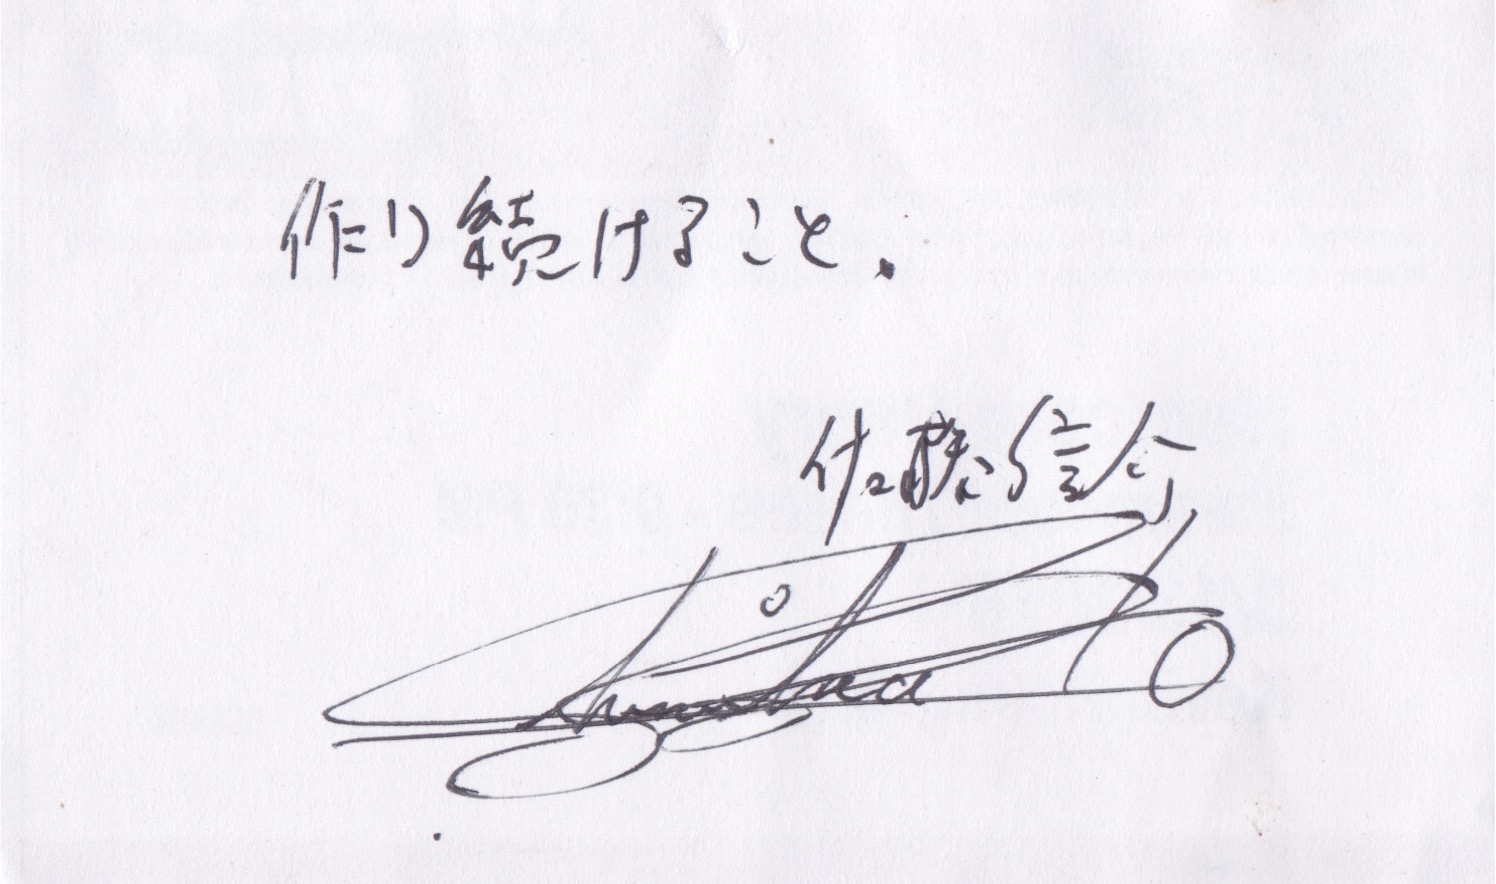 作り続けること.
佐藤信介